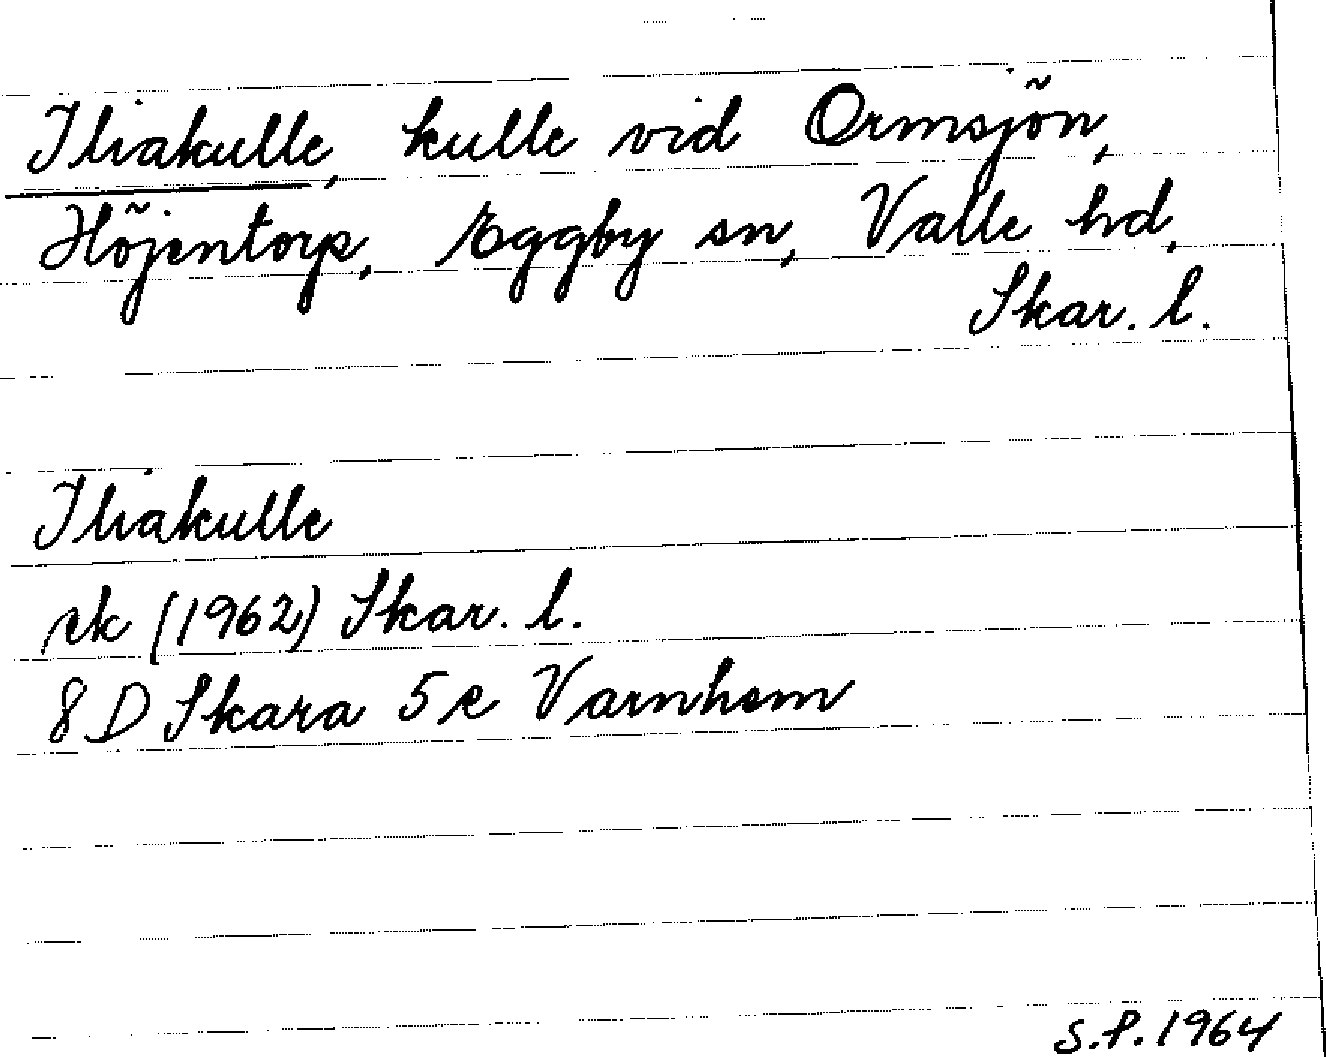 Iliakulle, kulle vid Ormsjön,
Höjentorp, Eggby sn, Valle hd,
Skar. l.
Iliakulle
ek (1962) Skar. l.
8 D Skara 5 e Varnhem
S.P. 1964